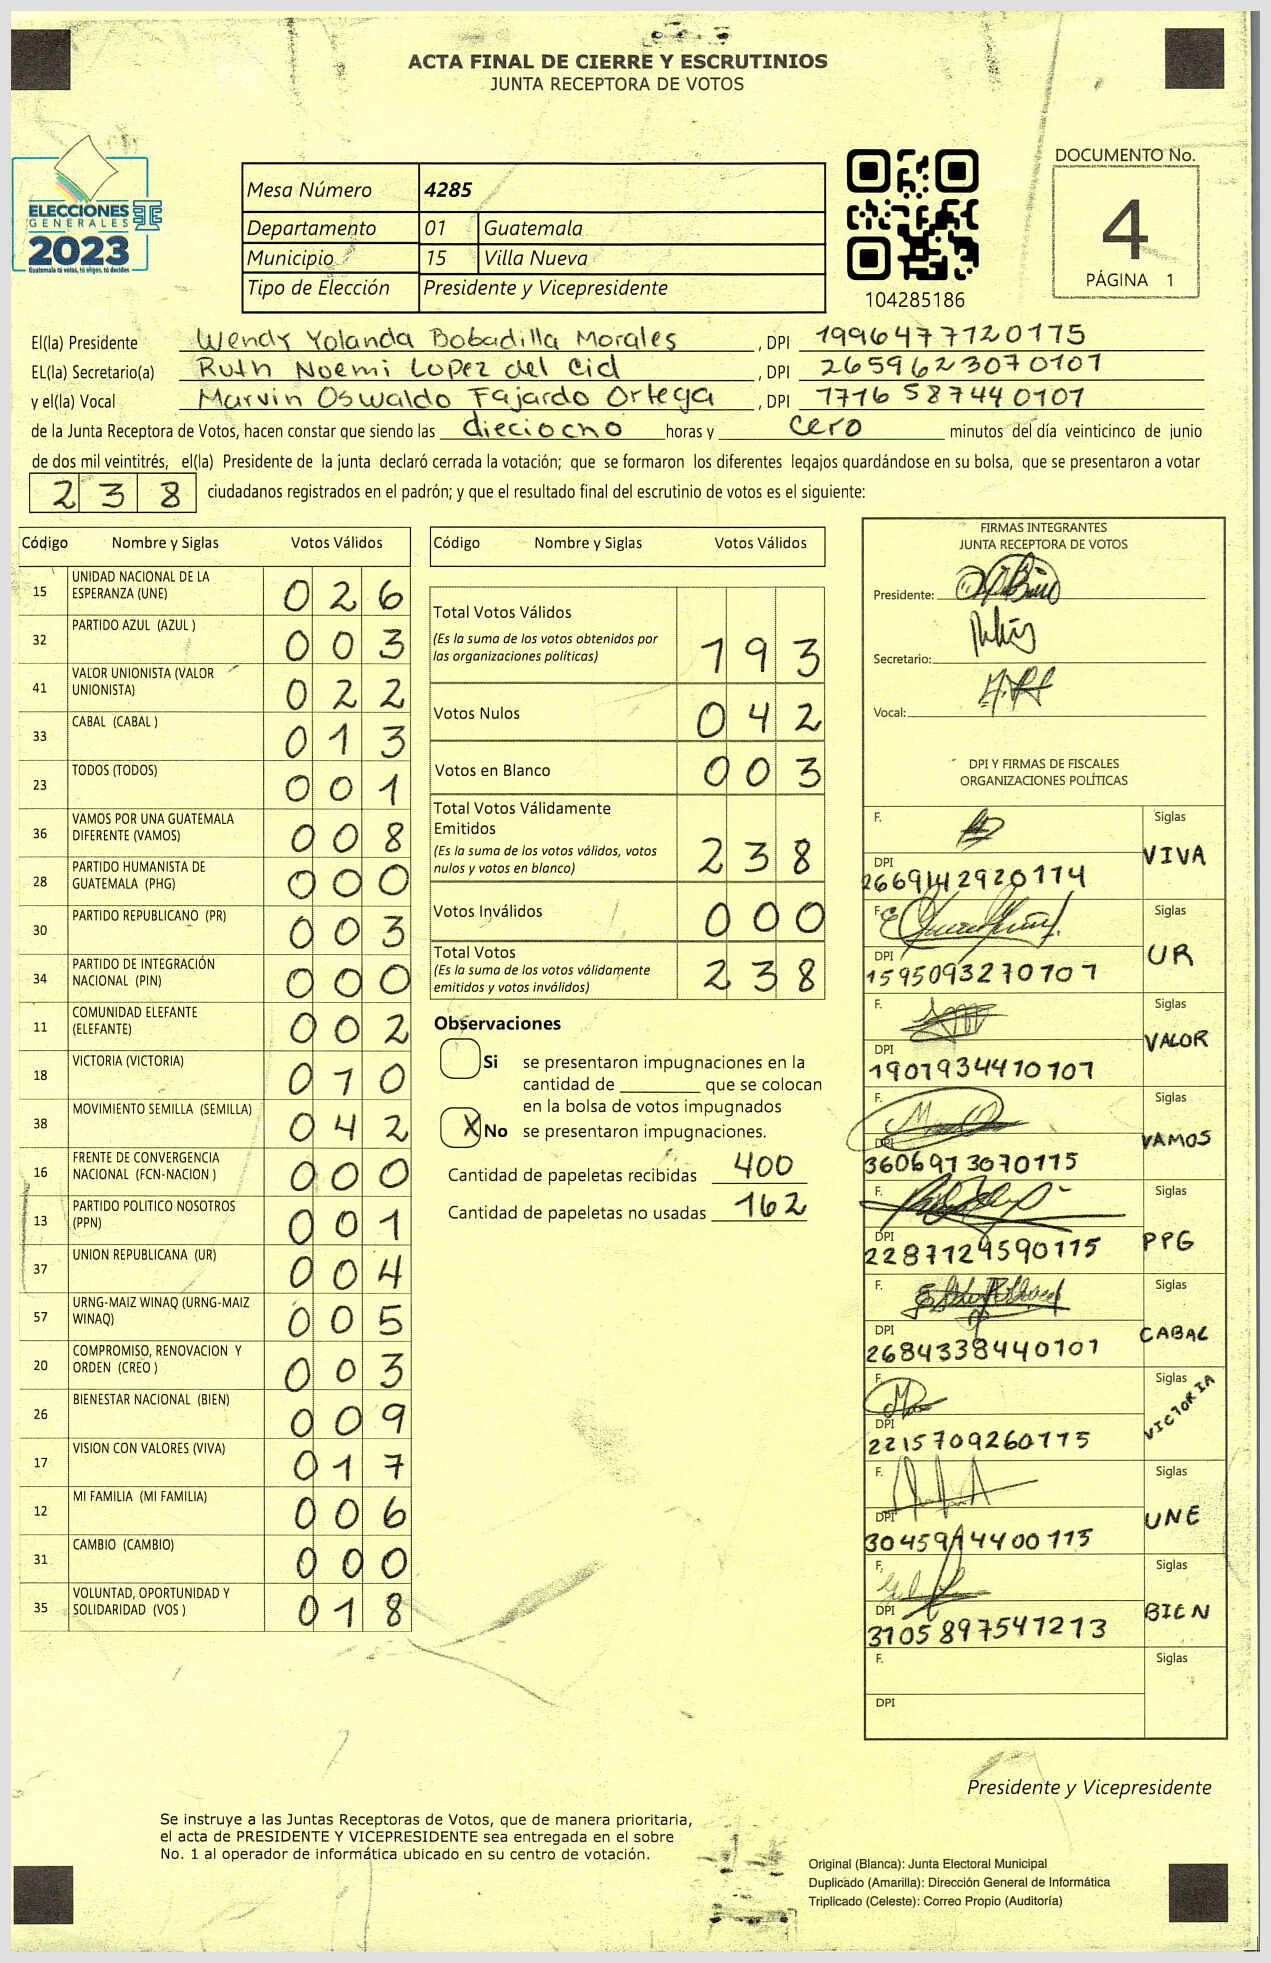 ACTA FINAL DE CIERRE Y ESCRUTINIOS
JUNTA RECEPTORA DE VOTOS
ELECCIONES
GENERALES
2023
Guatemala tú votas, tú eliges, tú decides
Mesa Número 4285
Departamento 01 Guatemala
Municipio 15 Villa Nueva
Tipo de Elección Presidente y Vicepresidente
104285186
DOCUMENTO No.
4
PÁGINA 1
El(la) Presidente Wendy Yolanda Bobadilla Morales , DPI 1996477120115
EL(la) Secretario(a) Ruth Noemi Lopez del Cid , DPI 2659623070101
y el(la) Vocal Marvin Oswaldo Fajardo Ortega , DPI 1716587440101
de la Junta Receptora de Votos, hacen constar que siendo las dieciocho horas y cero minutos del día veinticinco de junio
de dos mil veintitrés, el(la) Presidente de la junta declaró cerrada la votación; que se formaron los diferentes legajos guardándose en su bolsa, que se presentaron a votar
238 ciudadanos registrados en el padrón; y que el resultado final del escrutinio de votos es el siguiente:
Código Nombre y Siglas Votos Válidos
15 UNIDAD NACIONAL DE LA ESPERANZA (UNE) 026
32 PARTIDO AZUL (AZUL ) 003
41 VALOR UNIONISTA (VALOR UNIONISTA) 022
33 CABAL (CABAL ) 013
23 TODOS (TODOS) 001
36 VAMOS POR UNA GUATEMALA DIFERENTE (VAMOS) 008
28 PARTIDO HUMANISTA DE GUATEMALA (PHG) 000
30 PARTIDO REPUBLICANO (PR) 003
34 PARTIDO DE INTEGRACIÓN NACIONAL (PIN) 000
11 COMUNIDAD ELEFANTE (ELEFANTE) 002
18 VICTORIA (VICTORIA) 010
38 MOVIMIENTO SEMILLA (SEMILLA) 042
16 FRENTE DE CONVERGENCIA NACIONAL (FCN-NACION ) 000
13 PARTIDO POLITICO NOSOTROS (PPN) 001
37 UNION REPUBLICANA (UR) 004
57 URNG-MAIZ WINAQ (URNG-MAIZ WINAQ) 005
20 COMPROMISO, RENOVACION Y ORDEN (CREO ) 003
26 BIENESTAR NACIONAL (BIEN) 009
17 VISION CON VALORES (VIVA) 017
12 MI FAMILIA (MI FAMILIA) 006
31 CAMBIO (CAMBIO) 000
35 VOLUNTAD, OPORTUNIDAD Y SOLIDARIDAD (VOS ) 018
Código Nombre y Siglas Votos Válidos
Total Votos Válidos 193
(Es la suma de los votos obtenidos por
las organizaciones políticas)
Votos Nulos 042
Votos en Blanco 003
Total Votos Válidamente
Emitidos 238
(Es la suma de los votos válidos, votos
nulos y votos en blanco)
Votos Inválidos 000
Total Votos 238
(Es la suma de los votos válidamente
emitidos y votos inválidos)
Observaciones
Si se presentaron impugnaciones en la
cantidad de ________ que se colocan
en la bolsa de votos impugnados
X No se presentaron impugnaciones.
Cantidad de papeletas recibidas 400
Cantidad de papeletas no usadas 162
FIRMAS INTEGRANTES
JUNTA RECEPTORA DE VOTOS
Presidente:
Secretario:
Vocal:
DPI Y FIRMAS DE FISCALES
ORGANIZACIONES POLÍTICAS
F. Siglas VIVA
DPI 2669142920114
F. Siglas UR
DPI 1595093270101
F. Siglas VALOR
DPI 1901934410101
F. Siglas VAMOS
DPI 3606913070115
F. Siglas PPG
DPI 2287129590115
F. Siglas CABAL
DPI 2684338440101
F. Siglas VICTORIA
DPI 2215709260115
F. Siglas UNE
DPI
F. Siglas BIEN
DPI 3105897541213
F. Siglas
DPI
Presidente y Vicepresidente
Se instruye a las Juntas Receptoras de Votos, que de manera prioritaria,
el acta de PRESIDENTE Y VICEPRESIDENTE sea entregada en el sobre
No. 1 al operador de informática ubicado en su centro de votación.
Original (Blanca): Junta Electoral Municipal
Duplicado (Amarilla): Dirección General de Informática
Triplicado (Celeste): Correo Propio (Auditoría)